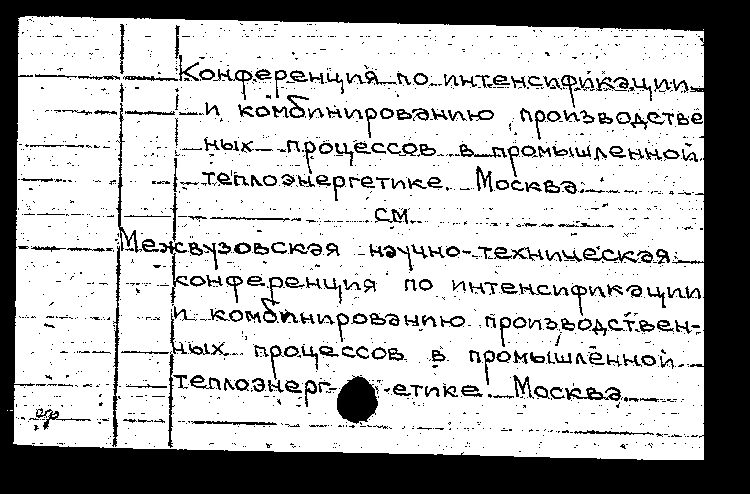 Конференция по интенсификации
и комбинированию производстве
ных процессов в промышленной
теплоэнергетике. Москва.
см.
Межвузовская научно-техническая
конференция по интенсификации
и комбинированию производствен-
ных процессов в промышленной
теплоэнерг-етике. Москва.